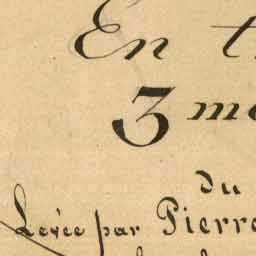 En t
3 me
du
Levée par Pierre